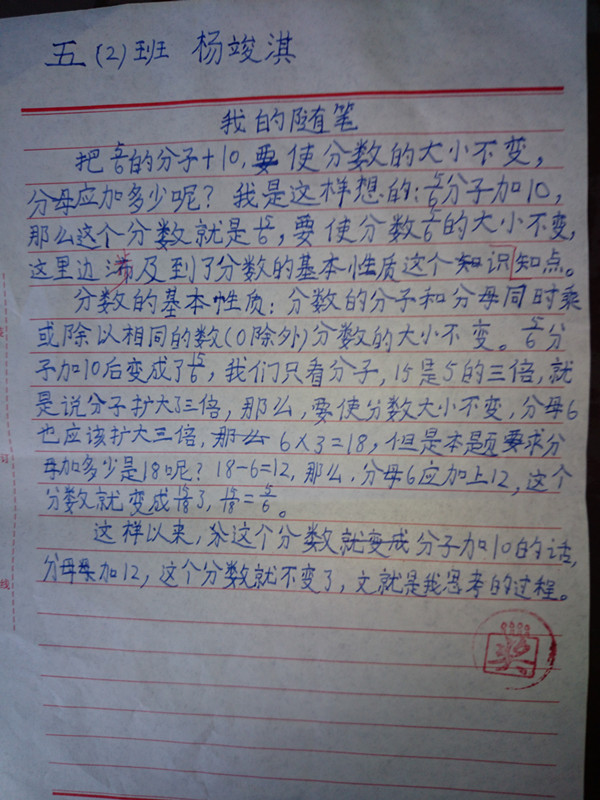 五(2)班 杨竣淇
我的随笔
把5/6的分子+10,要使分数的大小不变,
分母应加多少呢?我是这样想的:5/6分子加10,
那么这个分数就是15/6,要使分数5/6的大小不变,
这里边涉及到了分数的基本性质这个知识知点。
分数的基本性质:分数的分子和分母同时乘
或除以相同的数(0除外)分数的大小不变。5/6分
子加10后变成了15/6,我们只看分子,15是5的三倍,就
是说分子扩大了三倍,那么,要使分数大小不变,分母6
也应该扩大三倍,那么6×3=18,但是本题要求分
母加多少是18呢?18-6=12,那么,分母6应加上12,这个
分数就变成15/18了,15/18=5/6。
这样以来,分这个分数就变成分子加10的话,
分母加12,这个分数就不变了,文就是我思考的过程。
奖
订
线